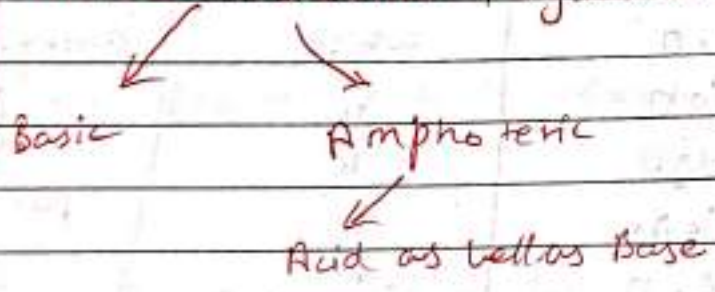 Basic Amphoteric
Acid as well as Base